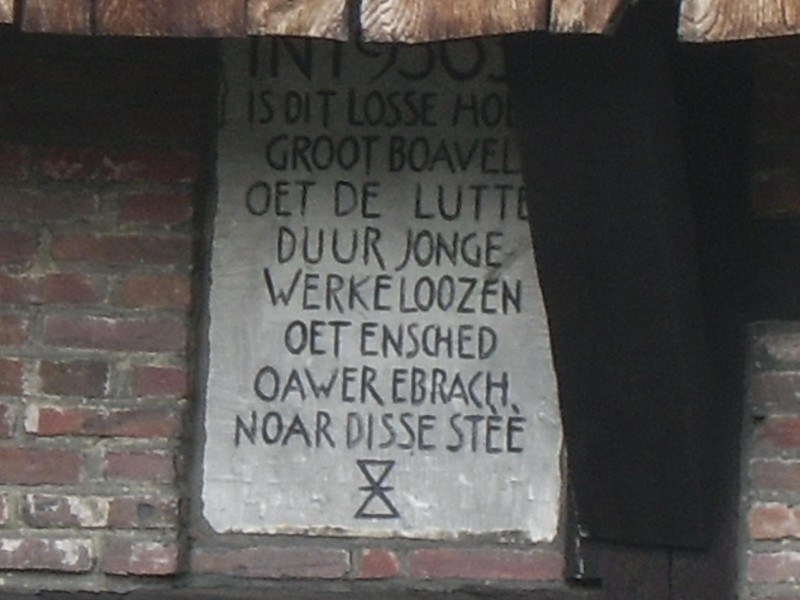 IS DIT LOSSE
GROOT
OET DE LUTTE
DUUR JONGE
WERKELOOZEN
OET ENSCHED
OAWER EBRACH.
NOAR DISSE STÈÈ